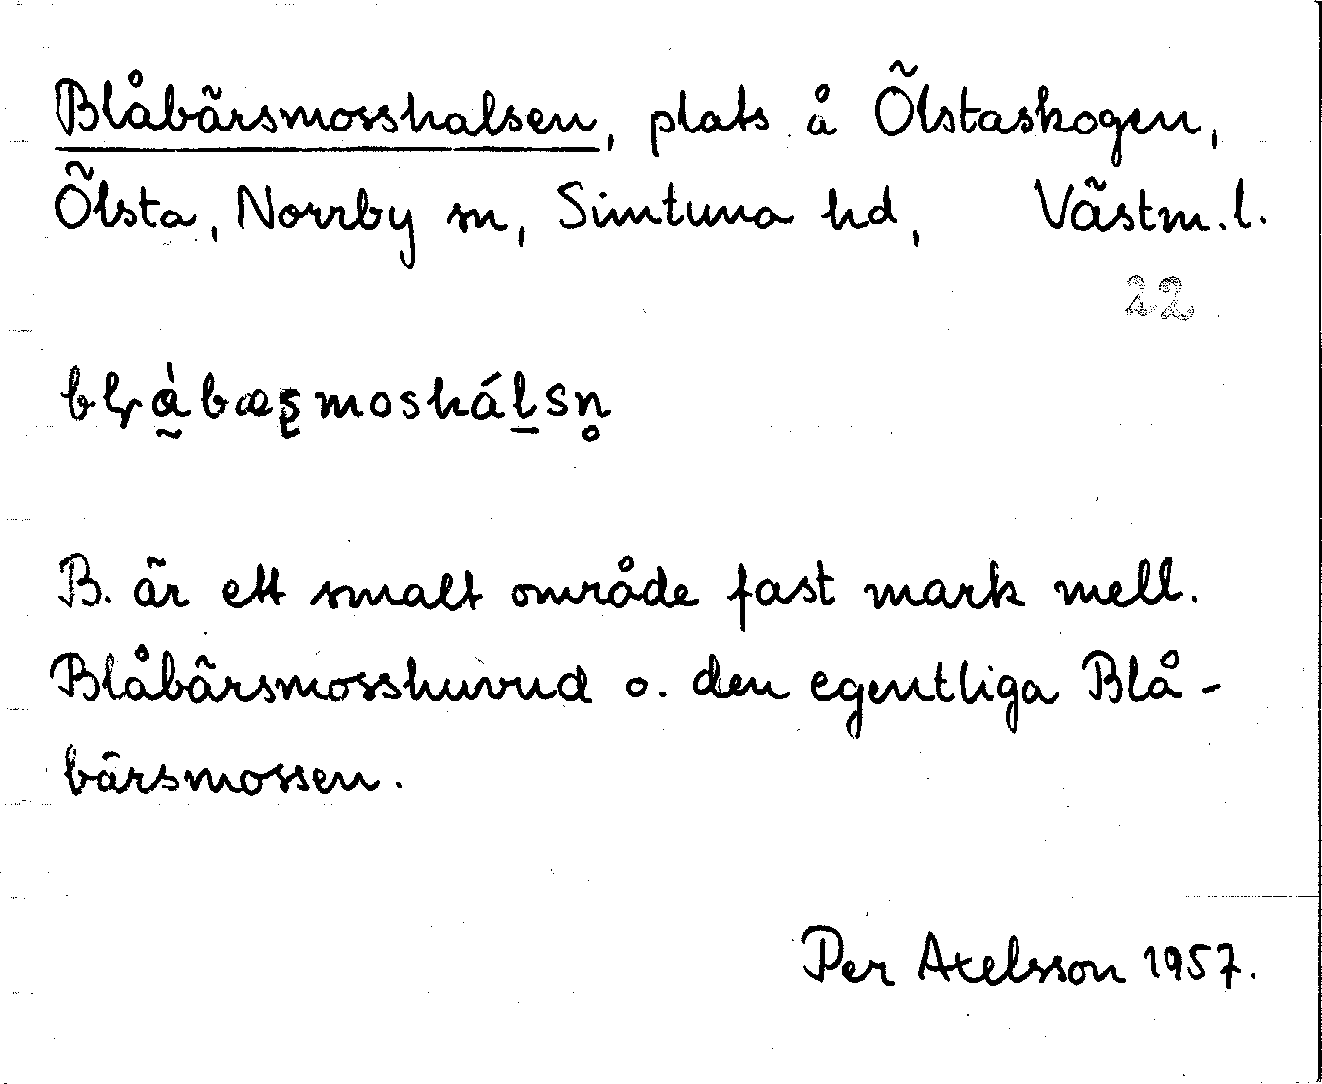 Blåbärsmosshalsen, plats å Ölstaskogen,
Ölsta, Norrby sn, Simtuna hd, Västm.l.
22
B. är ett smalt område fast mark mell.
Blåbärsmosshuvud o. den egentliga Blå-
bärsmossen.
Per Axelsson 1957.